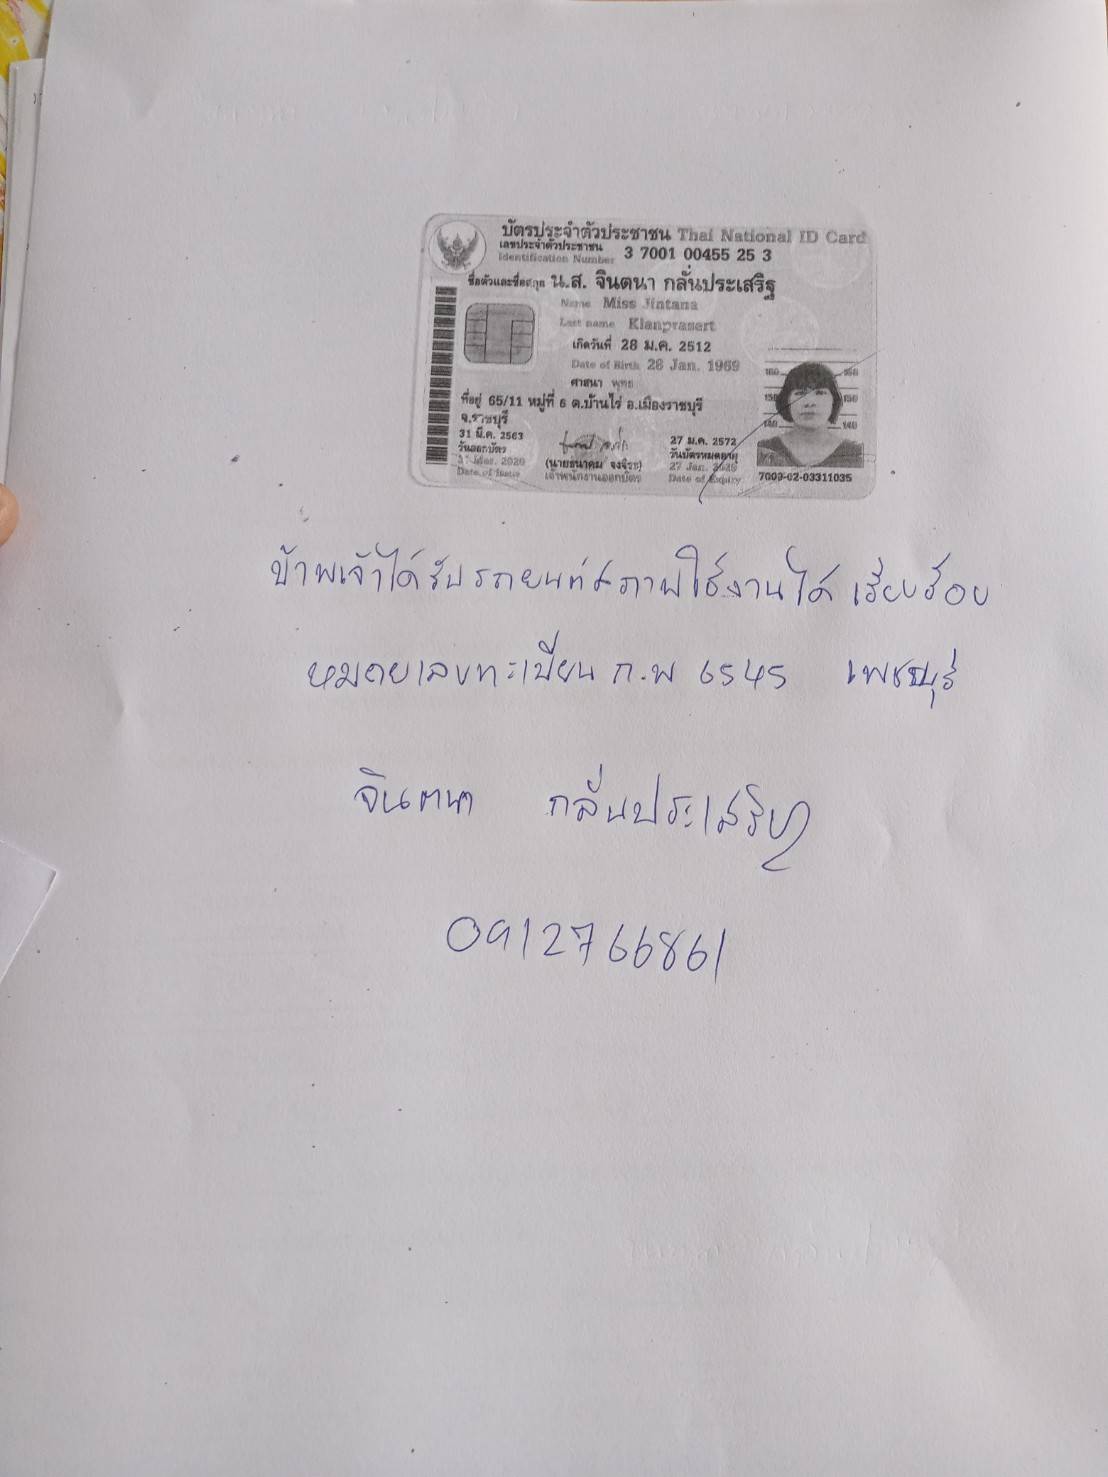 บัตรประจำตัวประชาชน Thai National ID Card
เลขประจำตัวประชาชน
Identification Number 3 7001 00455 25 3
ชื่อตัวและชื่อสกุล น.ส. จินตนา กลั่นประเสริฐ
Name Miss Jintana
Last name Klanprasert
เกิดวันที่ 28 ม.ค. 2512
Date of Birth 28 Jan. 1969
ศาสนา พุทธ
ที่อยู่ 65/11 หมู่ที่ 6 ต.บ้านไร่ อ.เมืองราชบุรี
จ.ราชบุรี
31 มี.ค. 2563
วันออกบัตร
31 Mar. 2020
Date of Issue
เจ้าพนักงานออกบัตร
27 ม.ค. 2572
วันบัตรหมดอายุ
27 Jan. 2029
Date of Expiry
160 160
150 150
140 140
7009-02-03311035
ข้าพเจ้าได้รับรถยนต์สภาพใช้งานได้ เรียบร้อย
หมายเลขทะเบียน ก.พ 6545 เพชรบุรี
จินตนา กลั่นประเสริฐ
0912766861